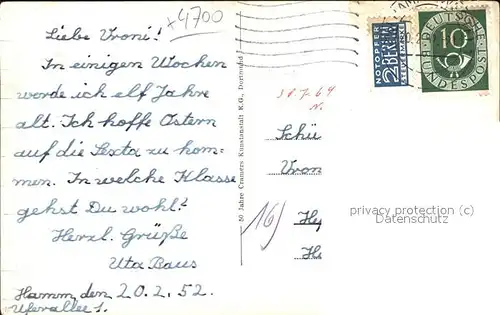 +4700
Liebe Vroni!
In einigen Wochen
werde ich elf Jahre
alt. Ich hoffe Ostern
auf die Sexta zu kom-
men. In welche Klasse
gehst Du wohl?
Herzl. Grüße
Uta Baus
Hamm, den 20.2.52.
Uferallee 1.
50 Jahre Cramers Kunstanstalt K.G., Dortmund
NOTOPFER
2 BERLIN
STEUERMARKE
DEUTSCHE
10
BUNDESPOST
Schü
Vron
16)
privacy protection (c)
Datenschutz